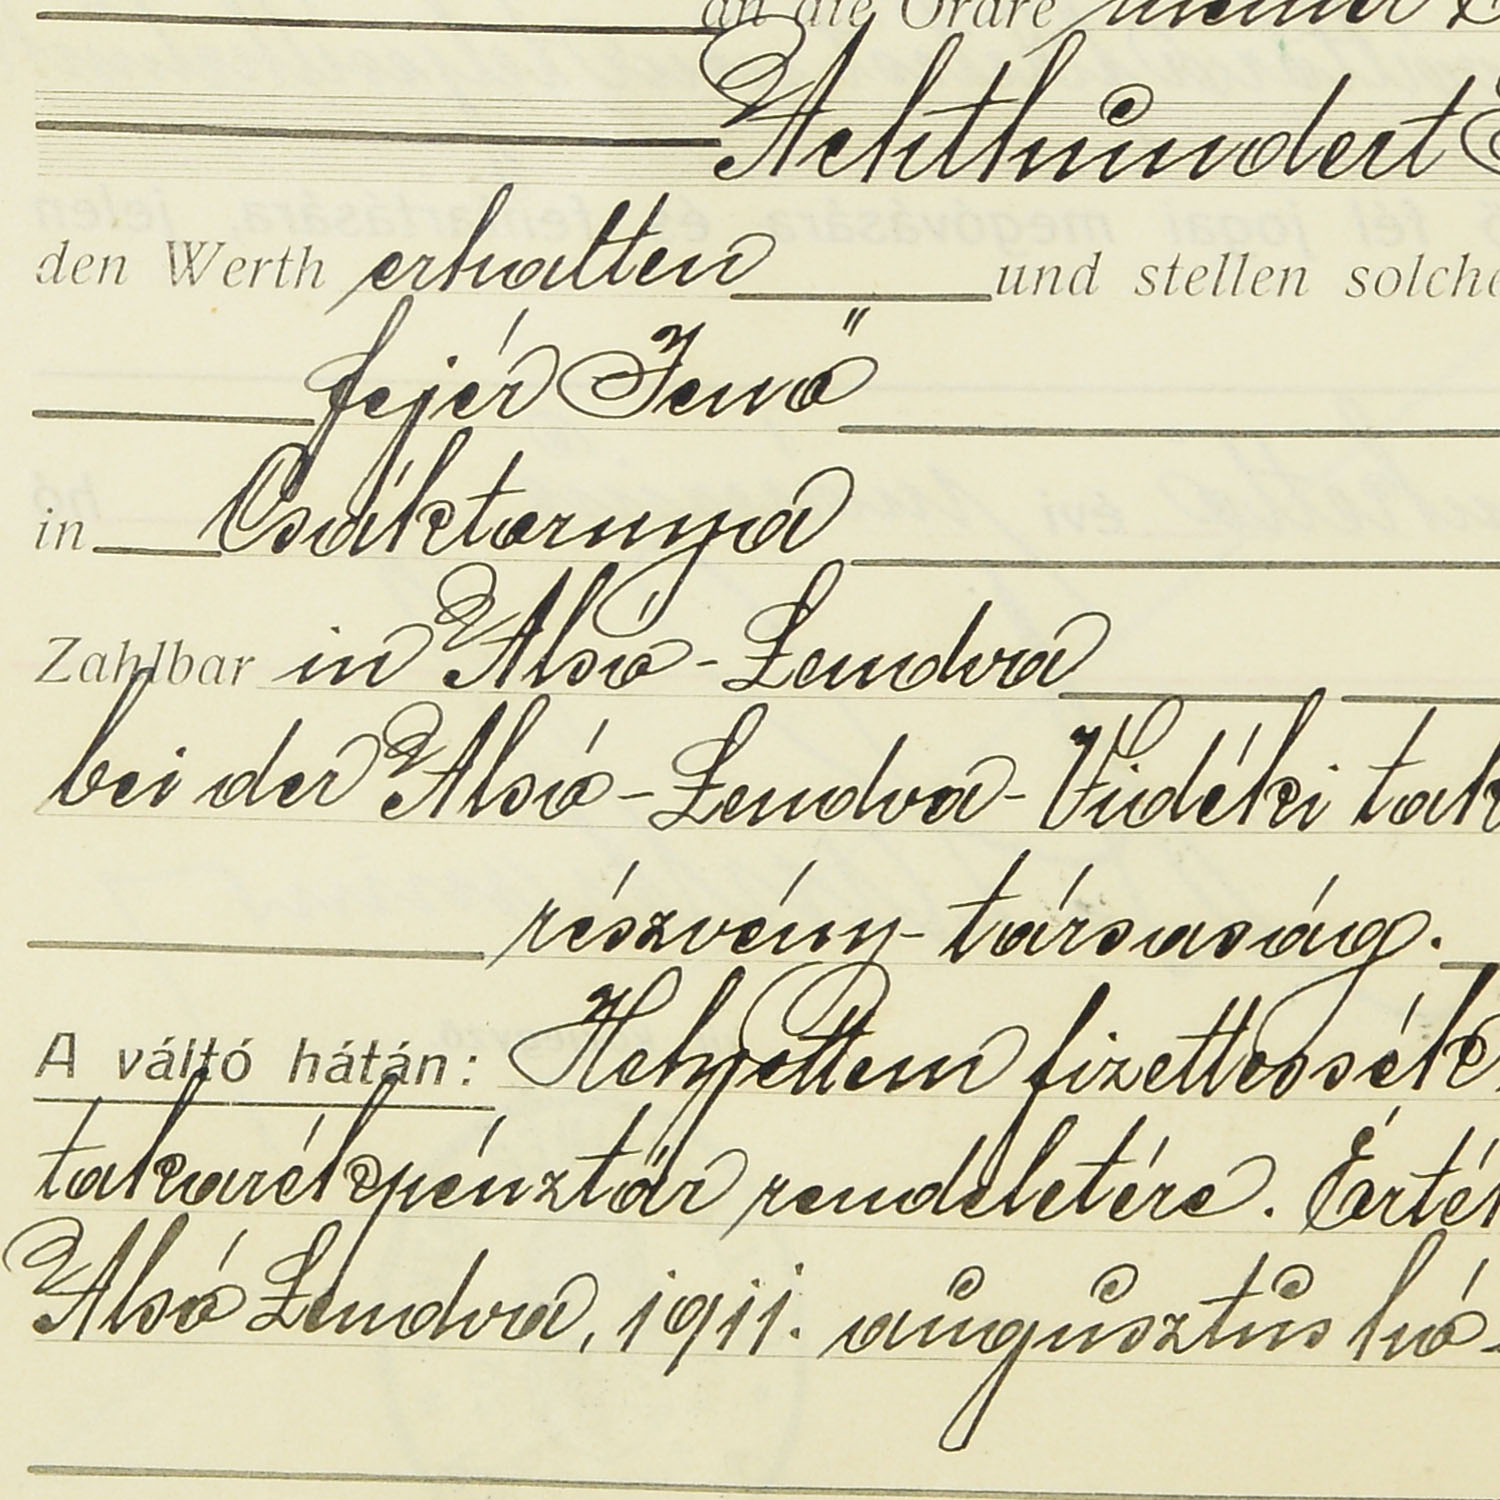 an die Ordre meiner
Achthundert
den Werth erhalten und stellen solche
Fejér Jenő
in Csáktornya
Zahlbar in Alsó-Lendva
bei der Alsó-Lendva-Vidéki tak
részvény-társaság.
A váltó hátán: Helyettem fizettessék
takarékpénztár rendeletére. Érték
Alsó Lendva, 1911. augusztus hó